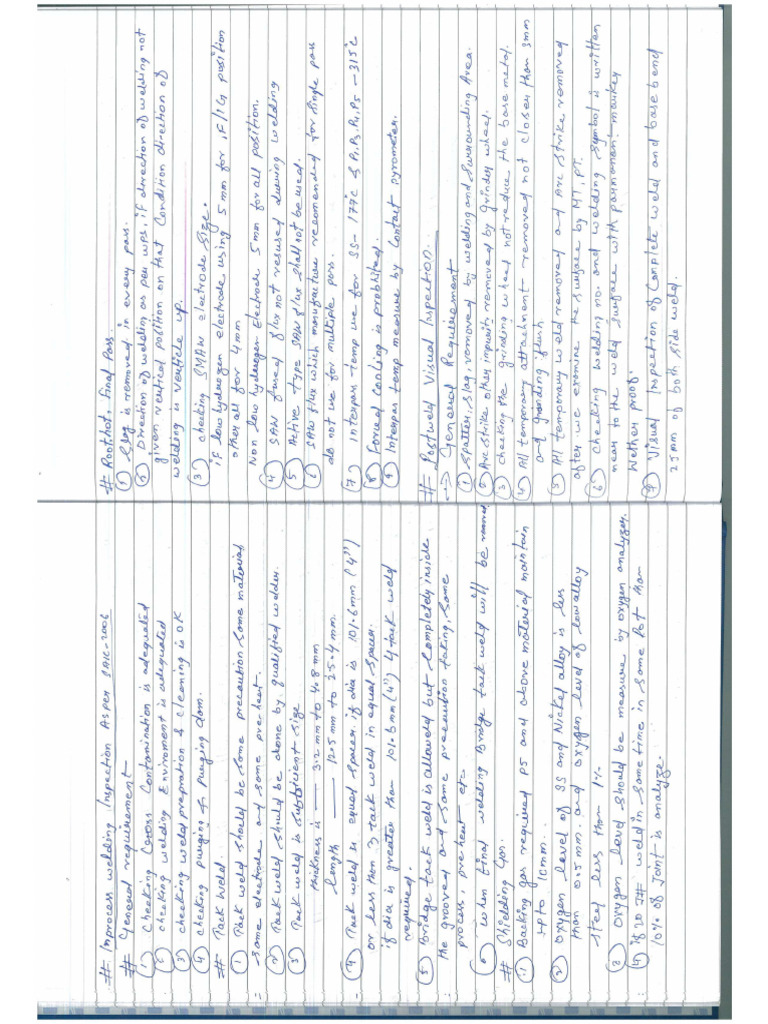 # Inprocess welding Inspection ASPER SAIC-2006
# General requirement
① Checking Cross Contamination is adequated
② checking welding Enviroment is adequated
③ checking weld prepration & cleaning is OK
④ checking purging & purging dam.
# Tack weld
① Tack weld should be some precaution some material
some electrode and some pre-heat.
② Tack weld should be done by qualified welder.
③ Tack weld is sufficient size
thickness is — 3.2 mm to 4.8 mm
Length — 12.5 mm to 25.4 mm.
④ Tack weld is equal spaces if dia is 101.6 mm (4")
or less than 3 tack weld in equal spaces.
if dia is greater than 101.6 mm (4") 4 tack weld
required.
⑤ Bridge tack weld is allowed but completely inside
the grooved and some precaution taking, some
process, pre-heat etc
⑥ when final welding Bridge tack weld will be removed
# Shielding Gas.
① Backing gas required P5 and above material maintain
upto 10mm.
② oxygen level of SS and Nickel alloy is less
than 0.5 mm. and oxygen level of low alloy
steel less than 1%
③ oxygen level should be measure by oxygen analyzer.
④ if 20 J# weld in same time in some Pot than
10% of Joint is analyze.
# Root, hot, final Pass.
① Slag is removed in every pass.
② Direction of welding as per wps. if direction of welding not
given vertical position on that Condition direction of
welding is verticle up.
③ checking SMAW electrode size.
if low hydrogen electrode using 5 mm for 1F/1G position
other all for 4mm
Non low hydrogen Electrode 5 mm for all position.
④ SAW fused flux not reused during welding
⑤ Active type SAW flux shall not be used.
⑥ SAW flux which manufacture recomended for single pass
do not use for multiple pass.
⑦ Interpass temp we for SS - 177°c & P1, P3, P4, P5 - 315°c
⑧ Forced cooling is prohbited.
⑨ Interpass temp measure by Contact pyrometer.
# Postweld Visual Inspection.
→ General Requirement
① Spatter, slag, removed by welding and surrounding Area.
② Arc strike other impurity removed by grinder wheel.
③ checking the grinding wheel not reduce the base metal.
④ All temporary attachment removed not closer than 3mm
and grinding flush
⑤ All temporary weld removed and Arc strike removed
after we examine the surface by MT, PT.
⑥ checking welding no. and welding symbol is written
near to the weld surface with parmanent markey
Wether proof.
⑦ Visual Inspection of Complete weld and base bend
25 mm of both side weld.